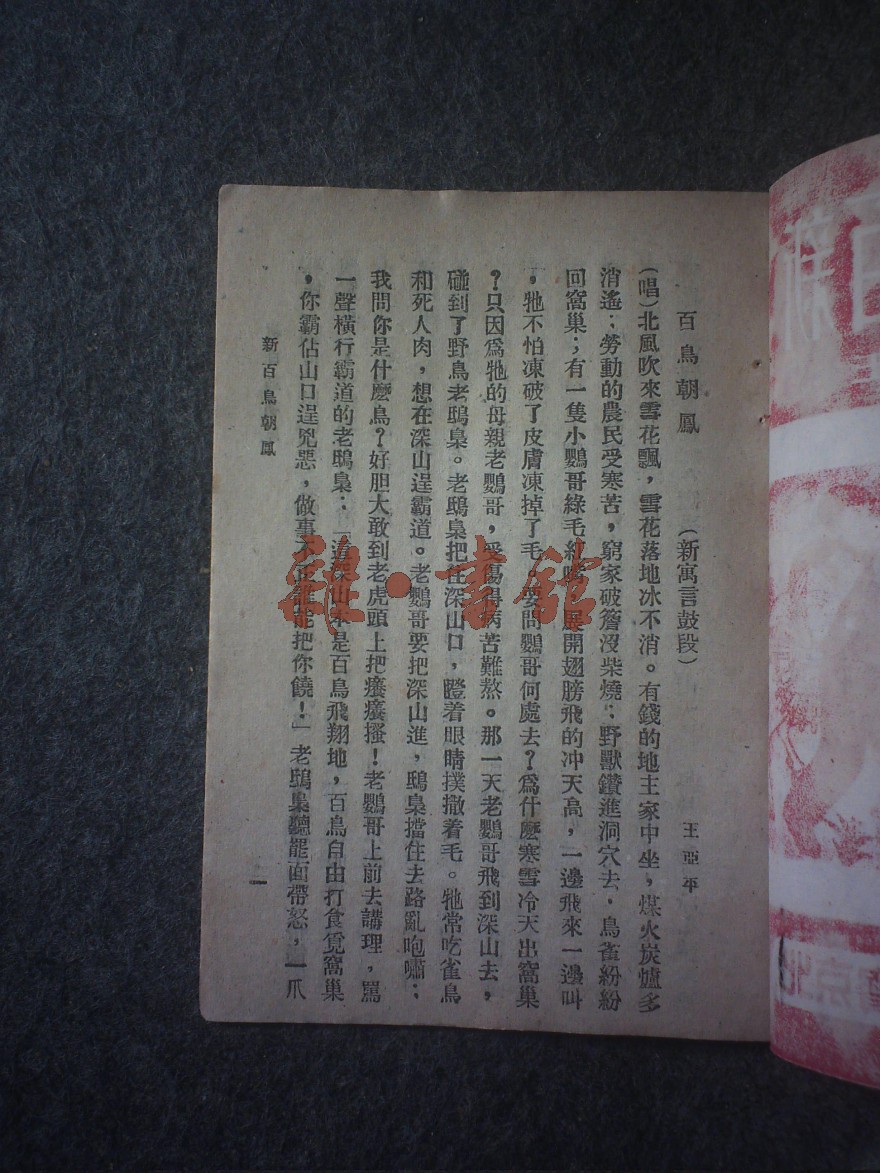 百鳥朝鳳　（新寓言鼓段）　王亞平
（唱）北風吹來雪花飄，雪花落地冰不消。有錢的地主家中坐，煤火炭爐多
消遙；勞動的農民受寒苦，窮家破簷沒柴燒；野獸鑽進洞穴去，鳥雀紛紛
回窩巢；有一隻小鸚哥綠毛紅嘴，展開翅膀飛的冲天高，一邊飛來一邊叫
，牠不怕凍破了皮膚凍掉了毛。要問鸚哥何處去？爲什麼寒雪冷天出窩巢
？只因爲牠的母親老鸚哥，受傷得病苦難熬。那一天老鸚哥飛到深山去，
碰到了野鳥老鴟梟。老鴟梟把住深山口，瞪着眼睛撲撒着毛。牠常吃雀鳥
和死人肉，想在深山逞霸道。老鸚哥要把深山進，鴟梟擋住去路亂咆嘯：
我問你是什麼鳥？好胆大敢到老虎頭上把癢癢搔！老鸚哥上前去講理，罵
一聲橫行霸道的老鴟梟：「這深山本是百鳥飛翔地，百鳥自由打食覓窩巢
，你霸佔山口逞兇惡，做事不正誰能把你饒！」老鴟梟聽罷面帶怒，一爪
新百鳥朝鳳
一
雜·書館